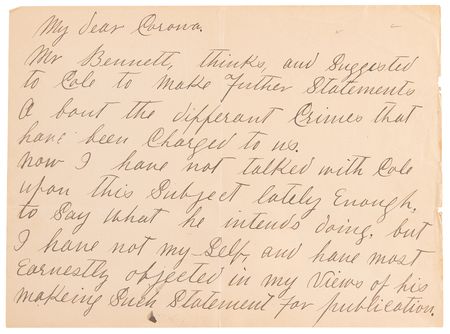 My dear Corona.
Mr Bennett, thinks, and Suggested
to Cole to make Futher Statements
A bout the differant Crimes that
have been Charged to us.
Now I have not talked with Cole
upon this Subject lately Enough,
to Say what he intends doing. but
I have not my-Self, and have most
Earnestly objected in my Views of his
making Such Statement for publication.